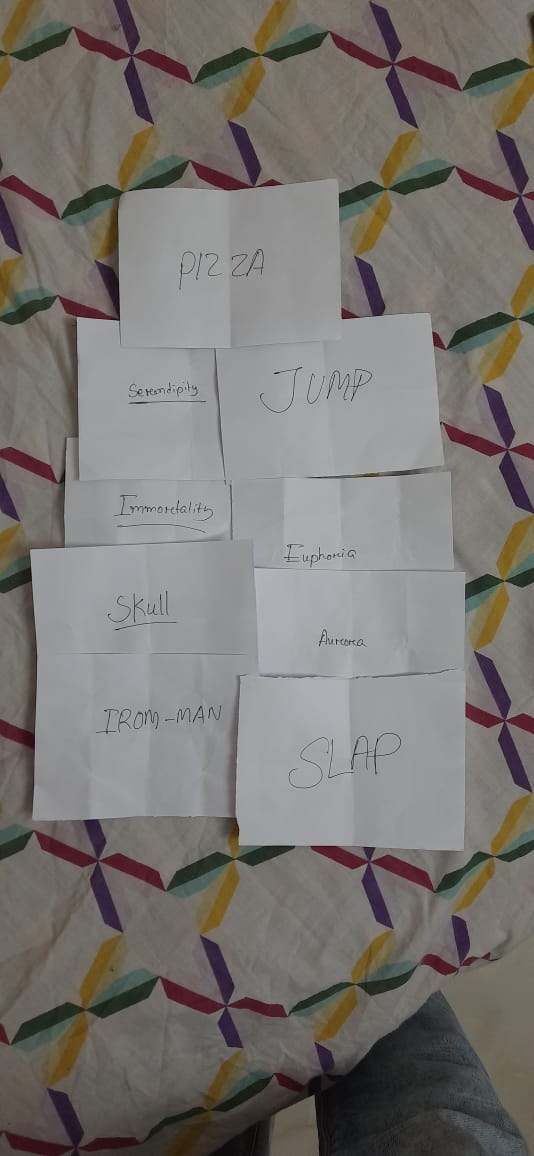 PIZZA
Serendipity
JUMP
Immortality
Euphoria
Skull
Aurora
IROM-MAN
SLAP